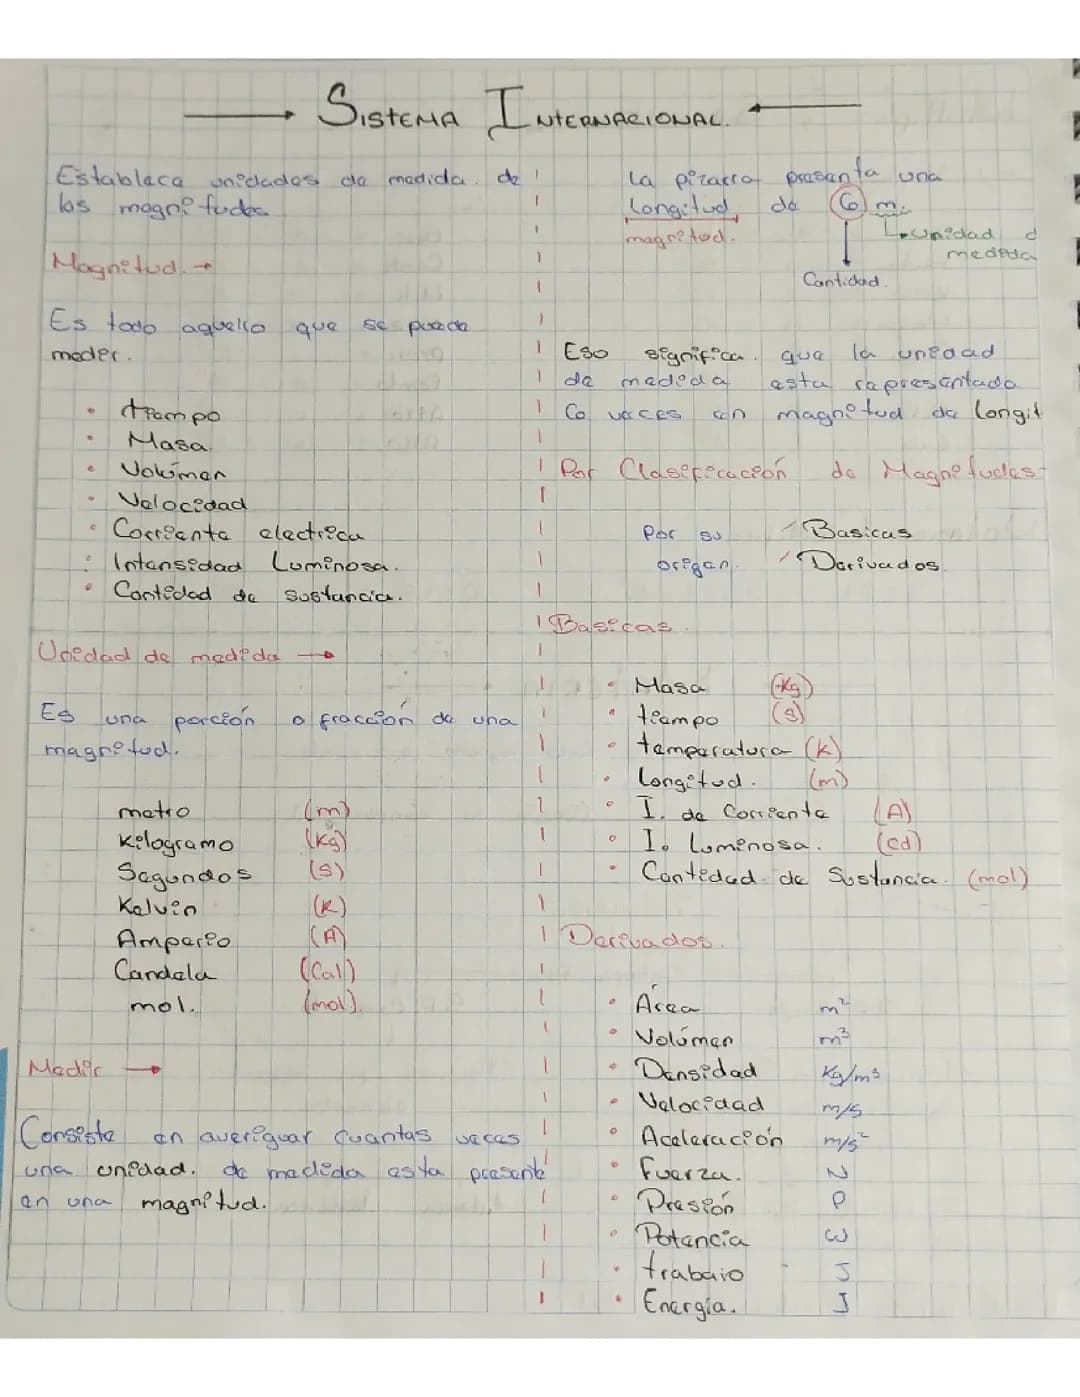 SISTEMA INTERNACIONAL.
Establece unidades de medida. de
las magnitudes
Magnitud. →
Es todo aquello que se puede
medir.
• tiempo
• Masa.
• Volúmen
• Velocidad
• Corriente electrica
• Intensidad Luminosa.
• Cantidad de sustancia.
Unidad de medida →
Es una porción o fracción de una
magnitud.
metro (m)
Kilogramo (Kg)
Segundos (s)
Kelvin (K)
Amperio (A)
Candela (Cal)
mol. (mol)
Medir →
Consiste en averiguar cuantas veces
una unidad. de medida esta present
en una magnitud.
la pizarra presenta una
longitud de 6 m.
magnitud. unidad d
medida
Cantidad.
Eso significa. que la unidad
de medida esta representado
6 veces en magnitud de longit
Por Clasificación de Magnitudes
Por su Basicas
origen. Derivados.
Basicas.
• Masa (Kg)
• tiempo (s)
• temperatura (K)
• longitud. (m)
• I. de Corriente (A)
• I. luminosa. (cd)
• Cantidad de Sustancia. (mol)
Derivados.
• Área m²
• Volúmen m³
• Densidad Kg/m³
• Velocidad m/s
• Aceleración m/s²
• Fuerza. N
• Presión P
• Potencia W
• trabaio J
• Energía. J